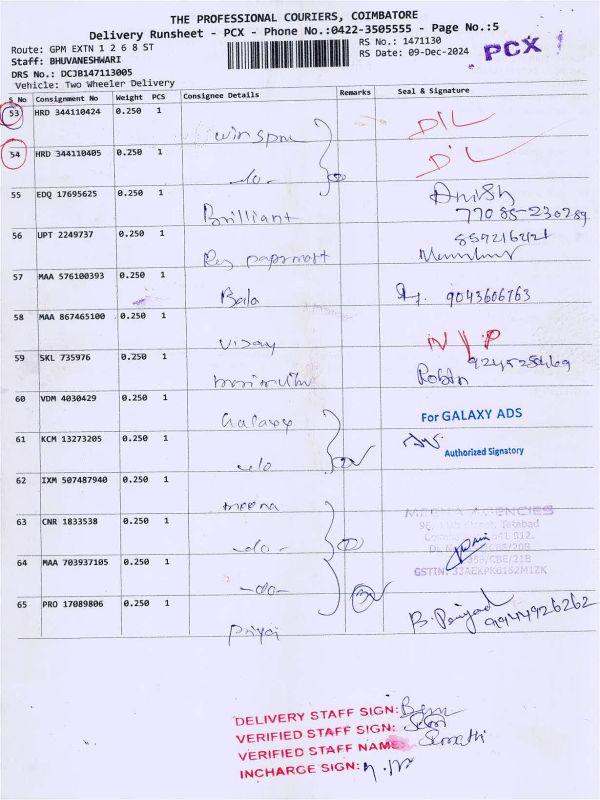 THE PROFESSIONAL COURIERS, COIMBATORE
Delivery Runsheet - PCX - Phone No.:0422-3505555 - Page No.:5
Route: GPM EXTN 1 2 6 8 ST
RS No.: 1471130
PCX
Staff: BHUVANESHWARI
RS Date: 09-Dec-2024
DRS No.: DCJB147113005
Vehicle: Two Wheeler Delivery
S No Consignment No Weight PCS Consignee Details Remarks Seal & Signature
53 HRD 344110424 0.250 1 D/L
54 HRD 344110405 0.250 1 -do- D/L
55 EDQ 17695625 0.250 1 Brilliant Anish
77085-230289
56 UPT 2249737 0.250 1
57 MAA 576100393 0.250 1 Bala 9043606763
58 MAA 867465100 0.250 1 Vijay
59 SKL 735976 0.250 1 Robin
60 VDM 4030429 0.250 1 Galaxy For GALAXY ADS
61 KCM 13273205 0.250 1 -do- Authorized Signatory
62 IXM 507487940 0.250 1 meena
MEENA AGENCIES
63 CNR 1833538 0.250 1 -do-
64 MAA 703937105 0.250 1 -do-
GSTIN: 33AEKPK0152M1ZK
65 PRO 17089806 0.250 1 Priya 9944926262
DELIVERY STAFF SIGN:
VERIFIED STAFF SIGN:
VERIFIED STAFF NAME: Sumathi
INCHARGE SIGN: